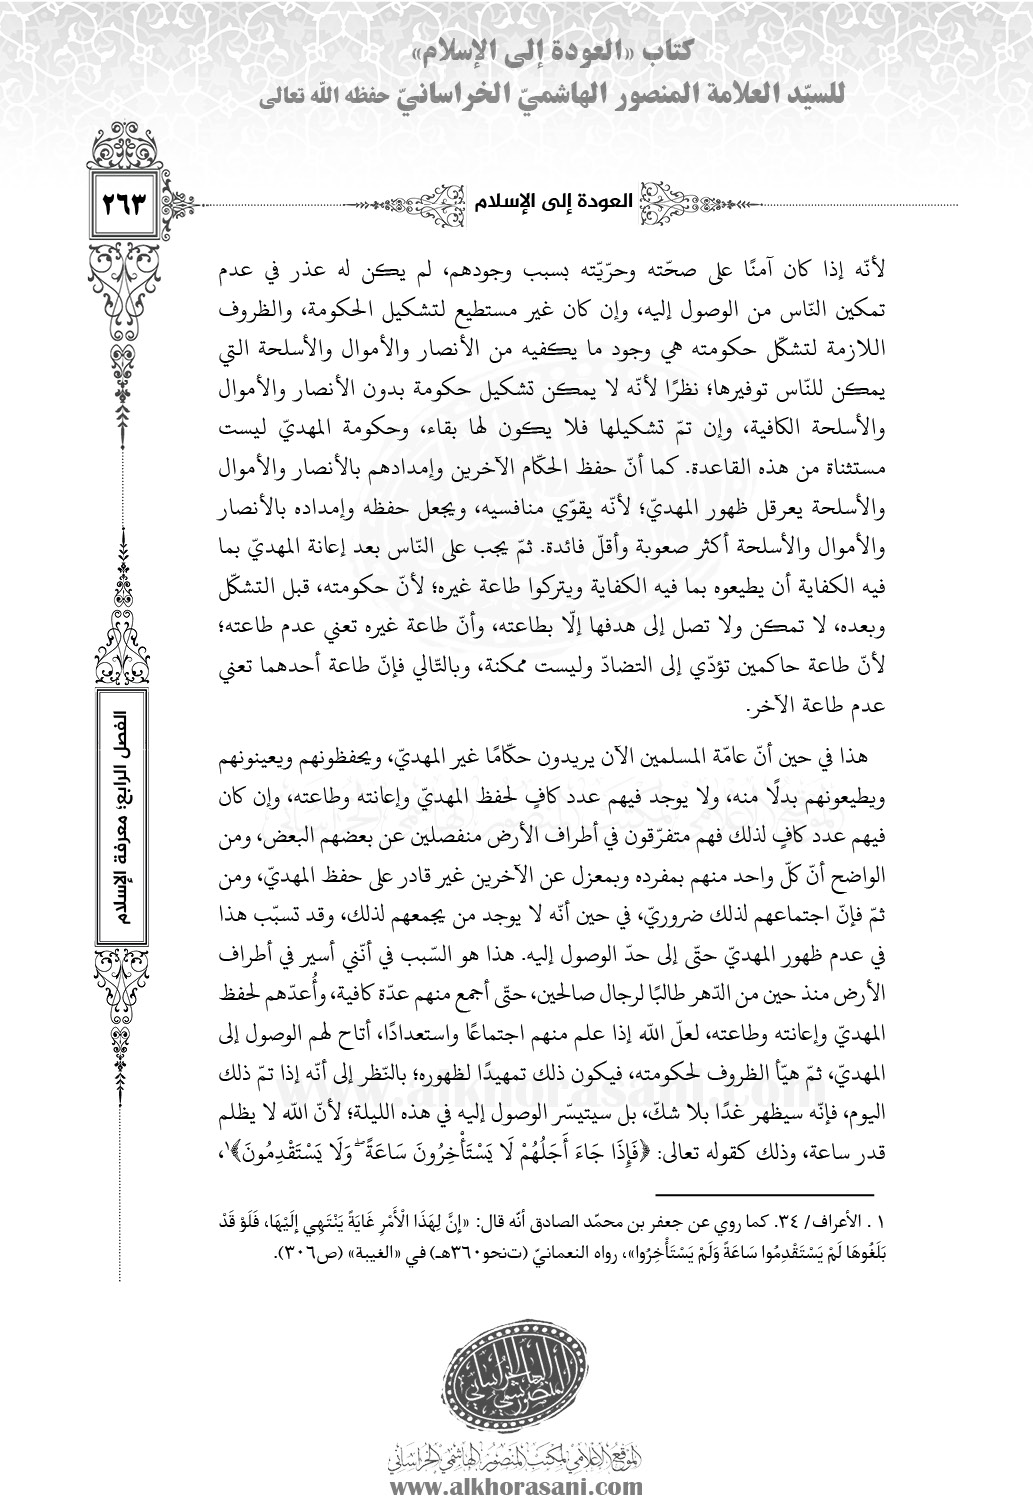 كتاب «العودة إلى الإسلام»
للسيّد العلامة المنصور الهاشميّ الخراسانيّ حفظه الله تعالى
٢٦٣
العودة إلى الإسلام
لأنّه إذا كان آمنًا على صحّته وحرّيّته بسبب وجودهم، لم يكن له عذر في عدم
تمكين النّاس من الوصول إليه، وإن كان غير مستطيع لتشكيل الحكومة، والظروف
اللازمة لتشكّل حكومته هي وجود ما يكفيه من الأنصار والأموال والأسلحة التي
يمكن للنّاس توفيرها؛ نظرًا لأنّه لا يمكن تشكيل حكومة بدون الأنصار والأموال
والأسلحة الكافية، وإن تمّ تشكيلها فلا يكون لها بقاء، وحكومة المهديّ ليست
مستثناة من هذه القاعدة. كما أنّ حفظ الحكّام الآخرين وإمدادهم بالأنصار والأموال
والأسلحة يعرقل ظهور المهديّ؛ لأنّه يقوّي منافسيه، ويجعل حفظه وإمداده بالأنصار
والأموال والأسلحة أكثر صعوبة وأقلّ فائدة. ثمّ يجب على النّاس بعد إعانة المهديّ بما
فيه الكفاية أن يطيعوه بما فيه الكفاية ويتركوا طاعة غيره؛ لأنّ حكومته، قبل التشكّل
وبعده، لا تمكن ولا تصل إلى هدفها إلّا بطاعته، وأنّ طاعة غيره تعني عدم طاعته؛
لأنّ طاعة حاكمين تؤدّي إلى التضادّ وليست ممكنة، وبالتّالي فإنّ طاعة أحدهما تعني
عدم طاعة الآخر.
هذا في حين أنّ عامّة المسلمين الآن يريدون حكّامًا غير المهديّ، ويحفظونهم ويعينونهم
ويطيعونهم بدلًا منه، ولا يوجد فيهم عدد كافٍ لحفظ المهديّ وإعانته وطاعته، وإن كان
فيهم عدد كافٍ لذلك فهم متفرّقون في أطراف الأرض منفصلين عن بعضهم البعض، ومن
الواضح أنّ كلّ واحد منهم بمفرده وبمعزل عن الآخرين غير قادر على حفظ المهديّ، ومن
ثمّ فإنّ اجتماعهم لذلك ضروريّ، في حين أنّه لا يوجد من يجمعهم لذلك، وقد تسبّب هذا
في عدم ظهور المهديّ حتّى إلى حدّ الوصول إليه. هذا هو السّبب في أنّني أسير في أطراف
الأرض منذ حين من الدّهر طالبًا لرجال صالحين، حتّى أجمع منهم عدّة كافية، وأُعدّهم لحفظ
المهديّ وإعانته وطاعته، لعلّ الله إذا علم منهم اجتماعًا واستعدادًا، أتاح لهم الوصول إلى
المهديّ، ثمّ هيّأ الظروف لحكومته، فيكون ذلك تمهيدًا لظهوره؛ بالنّظر إلى أنّه إذا تمّ ذلك
اليوم، فإنّه سيظهر غدًا بلا شكّ، بل سيتيسّر الوصول إليه في هذه الليلة؛ لأنّ الله لا يظلم
قدر ساعة، وذلك كقوله تعالى: ﴿فَإِذَا جَاءَ أَجَلُهُمْ لَا يَسْتَأْخِرُونَ سَاعَةً ۖ وَلَا يَسْتَقْدِمُونَ﴾١،
١ . الأعراف/ ٣٤. كما روي عن جعفر بن محمّد الصادق أنّه قال: «إِنَّ لِهَذَا الْأَمْرِ غَايَةً يَنْتَهِي إِلَيْهَا، فَلَوْ قَدْ
بَلَغُوهَا لَمْ يَسْتَقْدِمُوا سَاعَةً وَلَمْ يَسْتَأْخِرُوا»، رواه النعمانيّ (تنحو٣٦٠هـ) في «الغيبة» (ص٣٠٦).
الفصل الرابع؛ معرفة الإسلام
المنصور الهاشمي الخراساني
الموقع الإعلامي لمكتب المنصور الهاشمي الخراساني
www.alkhorasani.com